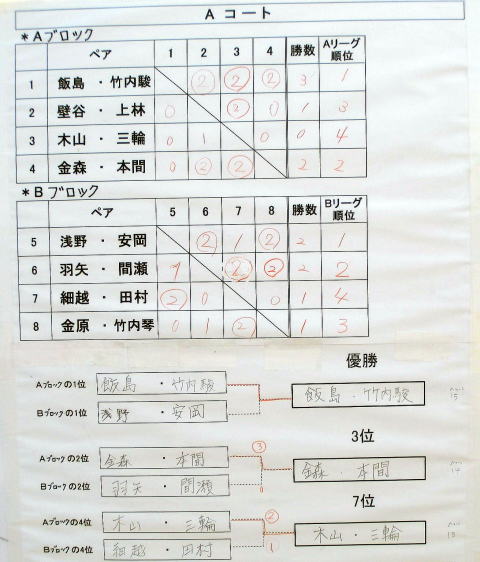 A コート
*Aブロック
ペア 1 2 3 4 勝数 Aリーグ順位
1 飯島 ・ 竹内駿 ② ② ② 3 1
2 壁谷 ・ 上林 0 ② 0 1 3
3 木山 ・ 三輪 0 1 0 0 4
4 金森 ・ 本間 0 ② ② 2 2
*Bブロック
ペア 5 6 7 8 勝数 Bリーグ順位
5 浅野 ・ 安岡 ② 1 ② 2 1
6 羽矢 ・ 間瀬 1 ② ② 2 2
7 細越 ・ 田村 ② 0 0 1 4
8 金原 ・ 竹内琴 0 1 ② 1 3
優勝
Aブロックの1位 飯島 ・ 竹内駿
飯島 ・ 竹内駿
Bブロックの1位 浅野 ・ 安岡
3位
Aブロックの2位 金森 ・ 本間 ③
金森 ・ 本間
Bブロックの2位 羽矢 ・ 間瀬
7位
Aブロックの4位 木山 ・ 三輪 ②
木山 ・ 三輪
Bブロックの4位 細越 ・ 田村 1